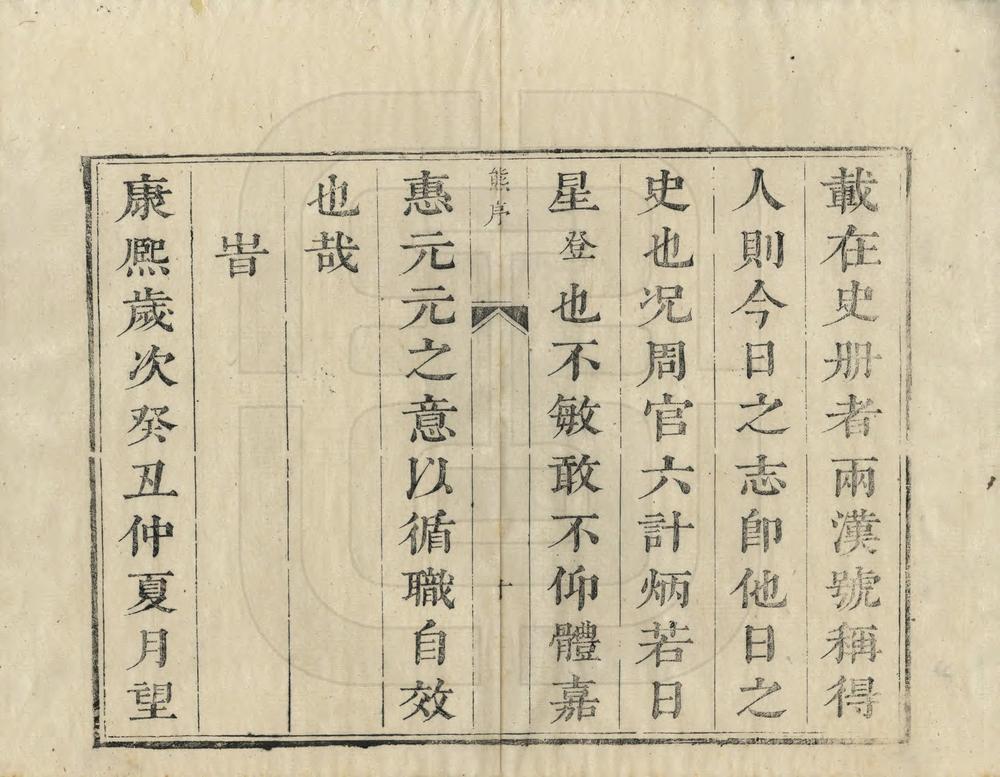 載在史册者兩漢號稱得
人則今日之志卽他日之
史也况周官六計炳若日
星登也不敏敢不仰體嘉
熊序
十
惠元元之意以循職自效
也哉
旹
康熙歲次癸丑仲夏月望